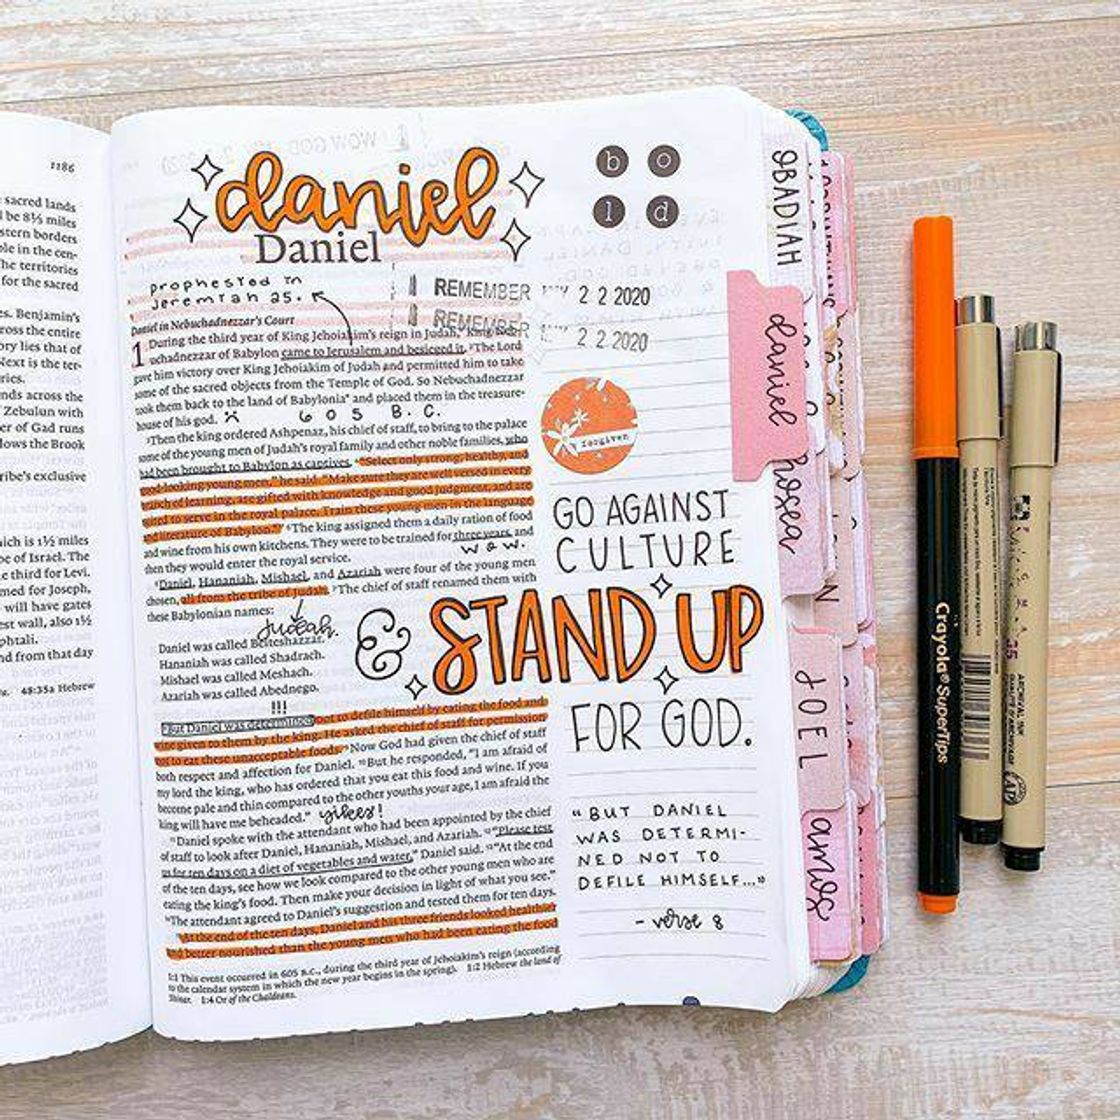 1186
sacred lands
be 8½ miles
stern borders
ole in the cen-
he territories
for the sacred
es. Benjamin's
ross the entire
ory lies that of
Next is the ter-
ries.
ends across the
Zebulun with
er of Gad runs
lows the Brook
ribe's exclusive
hich is 1½ miles
pe of Israel. The
e third for Levi.
med for Joseph,
will have gates
est wall, also 1½
phtali.
nd from that day
48:35a Hebrew
daniel
Daniel
prophesied in
Jeremiah 25.
Daniel in Nebuchadnezzar's Court
1 During the third year of King Jehoiakim's reign in Judah, King Nebu-
uchadnezzar of Babylon came to Jerusalem and besieged it. ²The Lord
gave him victory over King Jehoiakim of Judah and permitted him to take
some of the sacred objects from the Temple of God. So Nebuchadnezzar
took them back to the land of Babylonia* and placed them in the treasure-
house of his god.
605 B.C.
³Then the king ordered Ashpenaz, his chief of staff, to bring to the palace
some of the young men of Judah's royal family and other noble families, who
had been brought to Babylon as captives. ⁴"Select only strong, healthy, and
good-looking young men," he said. "Make sure they are well versed in every
branch of learning, are gifted with knowledge and good judgment, and are
suited to serve in the royal palace. Train these young men in the language
and literature of Babylon.*" ⁵The king assigned them a daily ration of food
and wine from his own kitchens. They were to be trained for three years, and
then they would enter the royal service.
wow.
⁶Daniel, Hananiah, Mishael, and Azariah were four of the young men
chosen, all from the tribe of Judah. ⁷The chief of staff renamed them with
these Babylonian names:
Judah.
Daniel was called Belteshazzar.
Hananiah was called Shadrach.
Mishael was called Meshach.
Azariah was called Abednego.
!!!
⁸But Daniel was determined not to defile himself by eating the food and
wine given to them by the king. He asked the chief of staff for permission
not to eat these unacceptable foods. ⁹Now God had given the chief of staff
both respect and affection for Daniel. ¹⁰But he responded, "I am afraid of
my lord the king, who has ordered that you eat this food and wine. If you
become pale and thin compared to the other youths your age, I am afraid the
king will have me beheaded."
yikes!
¹¹Daniel spoke with the attendant who had been appointed by the chief
of staff to look after Daniel, Hananiah, Mishael, and Azariah. ¹²"Please test
us for ten days on a diet of vegetables and water," Daniel said. ¹³"At the end
of the ten days, see how we look compared to the other young men who are
eating the king's food. Then make your decision in light of what you see."
¹⁴The attendant agreed to Daniel's suggestion and tested them for ten days.
At the end of the ten days, Daniel and his three friends looked healthier
and better nourished than the young men who had been eating the food
1:1 This event occurred in 605 B.C., during the third year of Jehoiakim's reign (according
to the calendar system in which the new year begins in the spring). 1:2 Hebrew the land of
Shinar. 1:4 Or of the Chaldeans.
b o
l d
REMEMBER 2 2 2020
REMEMBER 2 2 2020
forgiven
GO AGAINST
CULTURE
& STAND UP
FOR GOD.
"BUT DANIEL
WAS DETERMI-
NED NOT TO
DEFILE HIMSELF..."
- verse 8
OBADIAH
daniel
hosea
JOEL
amos
Crayola® SuperTips
05
ARCHIVAL INK